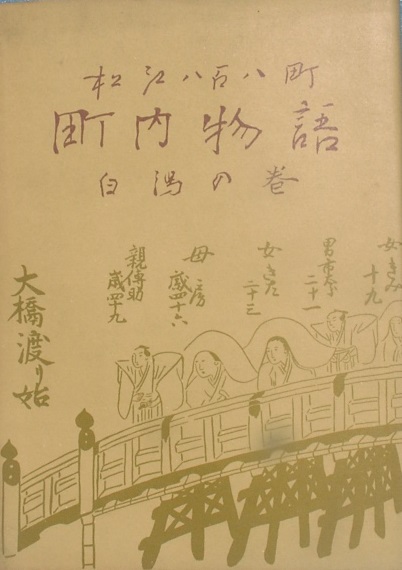 松江八百八町
町内物語
白潟の巻
女きみ
十九
男市太郎
二十一
女きた
二十三
母房
歳四十六
親傳助
歳四十九
大橋渡り始